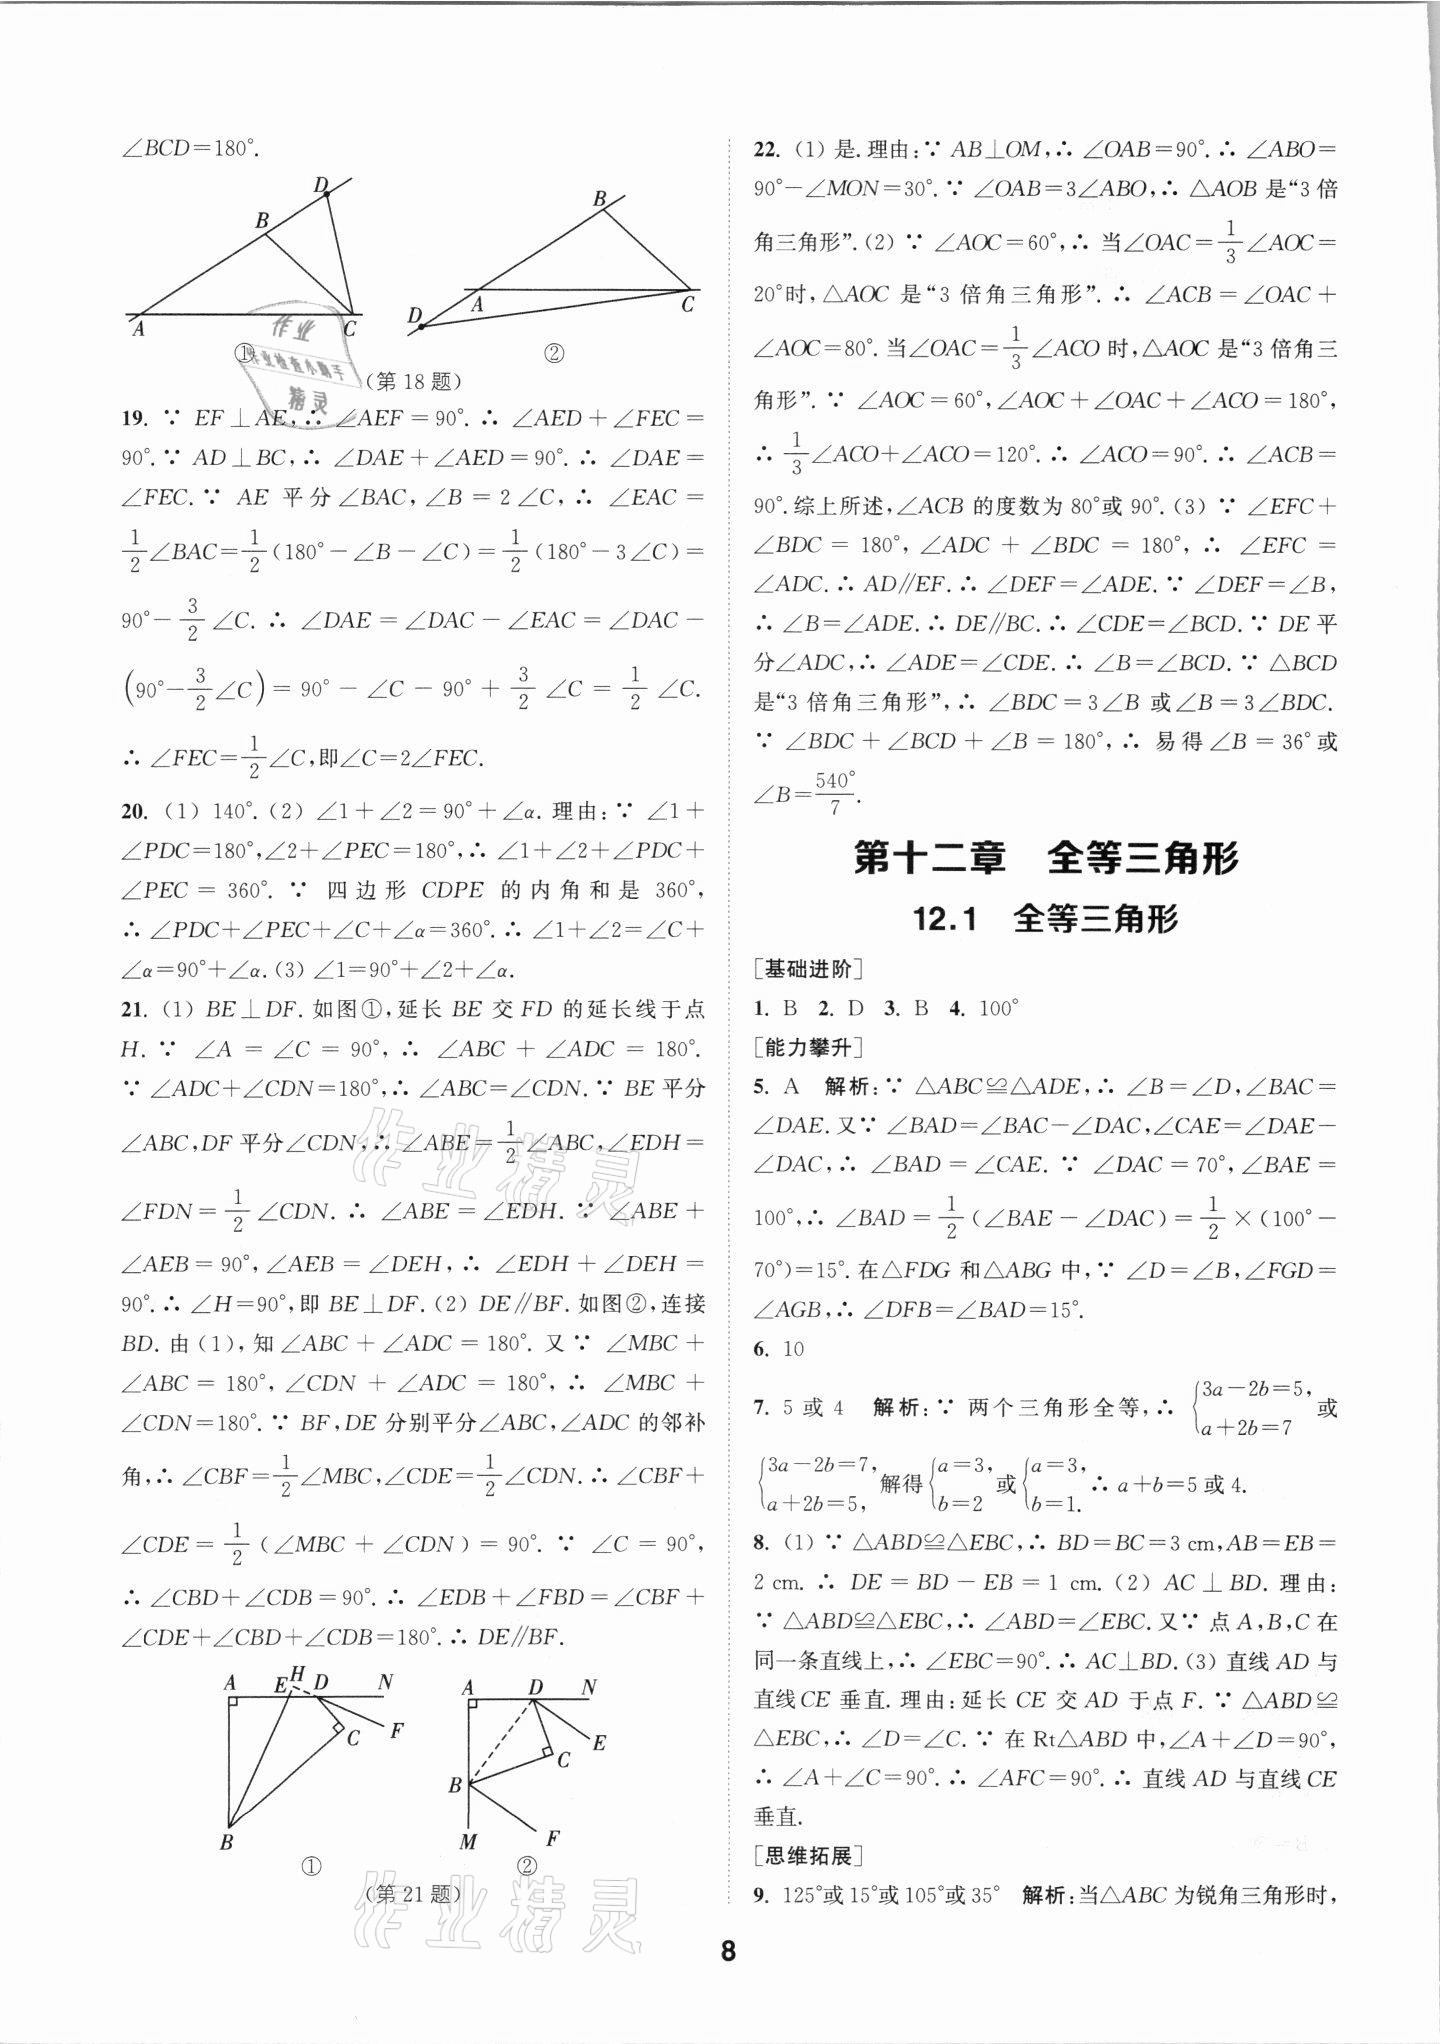 ∠BCD=180°.
D
B
A
C
①
B
A
C
D
②
(第18题)
19. ∵ EF⊥AE,∴ ∠AEF=90°.∴ ∠AED+∠FEC=
90°.∵ AD⊥BC,∴ ∠DAE+∠AED=90°.∴ ∠DAE=
∠FEC.∵ AE 平分∠BAC,∠B=2∠C,∴ ∠EAC=
1/2∠BAC=1/2(180°-∠B-∠C)=1/2(180°-3∠C)=
90°-3/2∠C.∴ ∠DAE=∠DAC-∠EAC=∠DAC-
(90°-3/2∠C)=90°-∠C-90°+3/2∠C=1/2∠C.
∴ ∠FEC=1/2∠C,即∠C=2∠FEC.
20. (1) 140°. (2) ∠1+∠2=90°+∠α.理由:∵ ∠1+
∠PDC=180°,∠2+∠PEC=180°,∴ ∠1+∠2+∠PDC+
∠PEC=360°.∵ 四边形 CDPE 的内角和是 360°,
∴ ∠PDC+∠PEC+∠C+∠α=360°.∴ ∠1+∠2=∠C+
∠α=90°+∠α. (3) ∠1=90°+∠2+∠α.
21. (1) BE⊥DF.如图①,延长 BE 交 FD 的延长线于点
H.∵ ∠A=∠C=90°,∴ ∠ABC+∠ADC=180°.
∵ ∠ADC+∠CDN=180°,∴ ∠ABC=∠CDN.∵ BE平分
∠ABC,DF平分∠CDN,∴ ∠ABE=1/2∠ABC,∠EDH=
∠FDN=1/2∠CDN.∴ ∠ABE=∠EDH.∵ ∠ABE+
∠AEB=90°,∠AEB=∠DEH,∴ ∠EDH+∠DEH=
90°.∴ ∠H=90°,即 BE⊥DF. (2) DE∥BF.如图②,连接
BD.由(1),知∠ABC+∠ADC=180°.又∵ ∠MBC+
∠ABC=180°,∠CDN+∠ADC=180°,∴ ∠MBC+
∠CDN=180°.∵ BF,DE分别平分∠ABC,∠ADC的邻补
角,∴ ∠CBF=1/2∠MBC,∠CDE=1/2∠CDN.∴ ∠CBF+
∠CDE=1/2(∠MBC+∠CDN)=90°.∵ ∠C=90°,
∴ ∠CBD+∠CDB=90°.∴ ∠EDB+∠FBD=∠CBF+
∠CDE+∠CBD+∠CDB=180°.∴ DE∥BF.
A E H D N
C F
B
①
A D N
E
C
B
M F
②
(第21题)
22. (1) 是.理由:∵ AB⊥OM,∴ ∠OAB=90°.∴ ∠ABO=
90°-∠MON=30°.∵ ∠OAB=3∠ABO,∴ △AOB是“3倍
角三角形”. (2) ∵ ∠AOC=60°,∴ 当∠OAC=1/3∠AOC=
20°时,△AOC是“3倍角三角形”.∴ ∠ACB=∠OAC+
∠AOC=80°.当∠OAC=1/3∠ACO时,△AOC是“3倍角三
角形”.∵ ∠AOC=60°,∠AOC+∠OAC+∠ACO=180°,
∴ 1/3∠ACO+∠ACO=120°.∴ ∠ACO=90°.∴ ∠ACB=
90°.综上所述,∠ACB的度数为80°或90°. (3) ∵ ∠EFC+
∠BDC=180°,∠ADC+∠BDC=180°,∴ ∠EFC=
∠ADC.∴ AD∥EF.∴ ∠DEF=∠ADE.∵ ∠DEF=∠B,
∴ ∠B=∠ADE.∴ DE∥BC.∴ ∠CDE=∠BCD.∵ DE平
分∠ADC,∴ ∠ADE=∠CDE.∴ ∠B=∠BCD.∵ △BCD
是“3倍角三角形”,∴ ∠BDC=3∠B或∠B=3∠BDC.
∵ ∠BDC+∠BCD+∠B=180°,∴ 易得∠B=36°或
∠B=540°/7.
第十二章 全等三角形
12.1 全等三角形
[基础进阶]
1. B 2. D 3. B 4. 100°
[能力攀升]
5. A 解析:∵ △ABC≌△ADE,∴ ∠B=∠D,∠BAC=
∠DAE.又∵ ∠BAD=∠BAC-∠DAC,∠CAE=∠DAE-
∠DAC,∴ ∠BAD=∠CAE.∵ ∠DAC=70°,∠BAE=
100°,∴ ∠BAD=1/2(∠BAE-∠DAC)=1/2×(100°-
70°)=15°.在△FDG和△ABG中,∵ ∠D=∠B,∠FGD=
∠AGB,∴ ∠DFB=∠BAD=15°.
6. 10
7. 5或4 解析:∵ 两个三角形全等,∴ {3a-2b=5, a+2b=7 或
{3a-2b=7, a+2b=5, 解得{a=3, b=2 或{a=3, b=1. ∴ a+b=5或4.
8. (1) ∵ △ABD≌△EBC,∴ BD=BC=3 cm,AB=EB=
2 cm.∴ DE=BD-EB=1 cm. (2) AC⊥BD.理由:
∵ △ABD≌△EBC,∴ ∠ABD=∠EBC.又∵ 点A,B,C在
同一条直线上,∴ ∠EBC=90°.∴ AC⊥BD. (3) 直线AD与
直线CE垂直.理由:延长CE交AD于点F.∵ △ABD≌
△EBC,∴ ∠D=∠C.∵ 在Rt△ABD中,∠A+∠D=90°,
∴ ∠A+∠C=90°.∴ ∠AFC=90°.∴ 直线AD与直线CE
垂直.
[思维拓展]
9. 125°或15°或105°或35° 解析:当△ABC为锐角三角形时,
8
作业
作业检查小助手
精灵
作业精灵
作业精灵